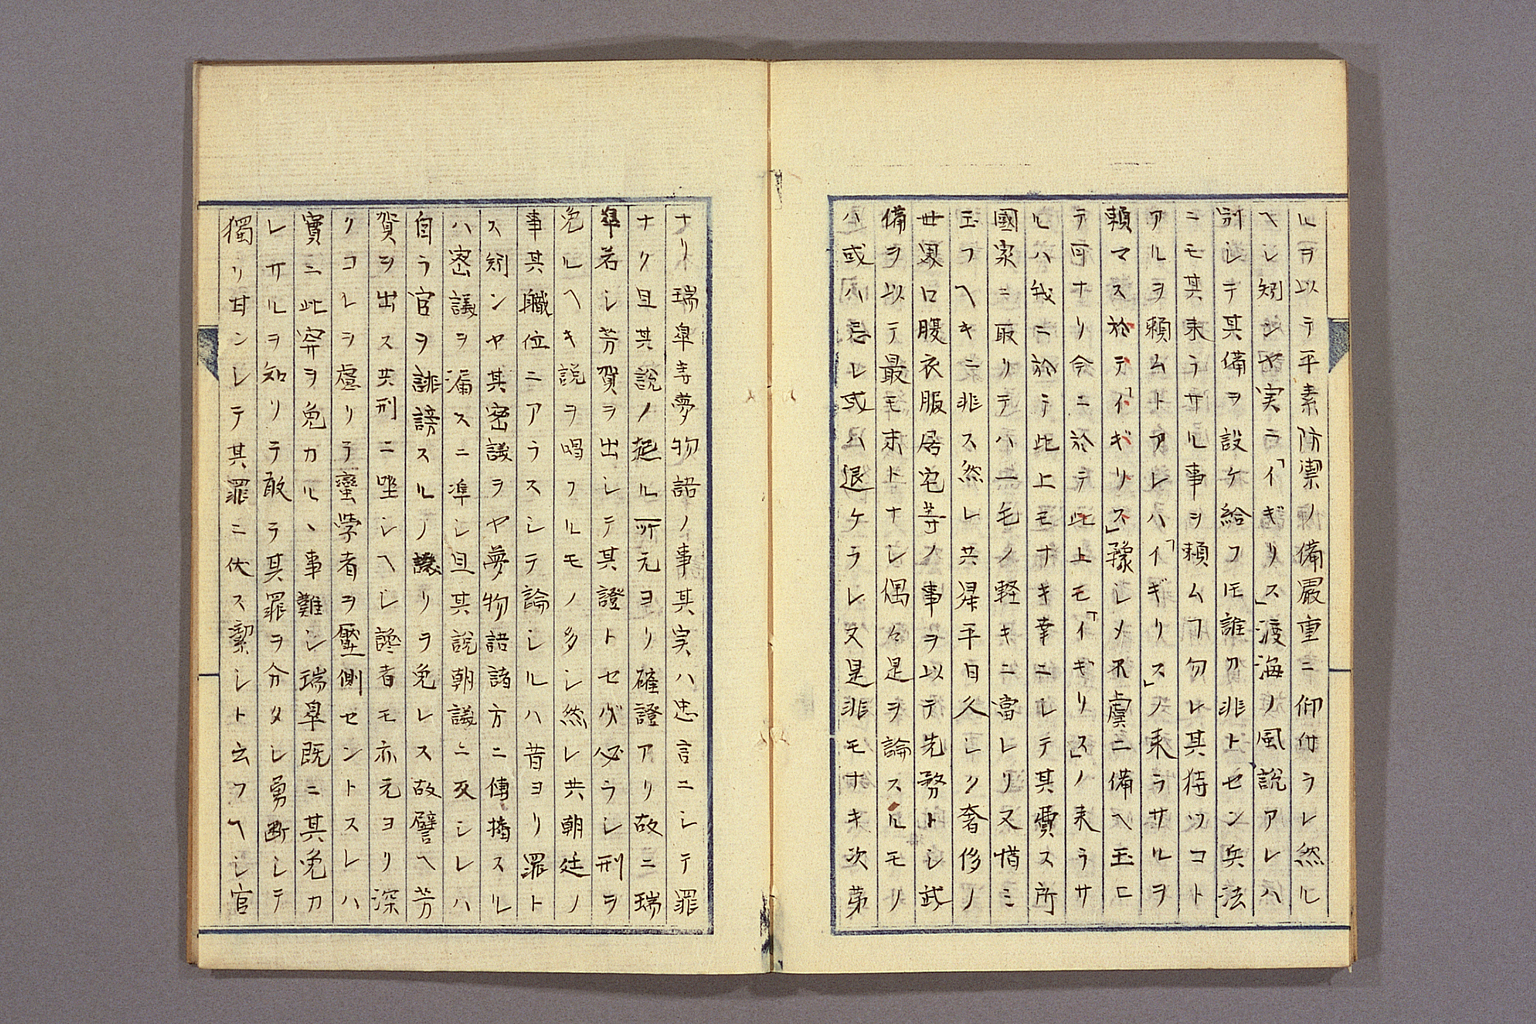 ルヲ以テ平素防禦ノ備嚴重ニ仰付ラレ然ル
ヘシ矧ンヤ実ラ「イギリス」渡海ノ風説アレハ
別シテ其備ヲ設ケ給フ𪜈誰カ非トセン兵法
ニモ其来ラサル事ヲ頼ムフ勿レ其待ツコト
アルヲ頼ムトアレハ「イギリス」ノ来ラサルヲ
頼マス於テ「イギリス」豫シメ不虞ニ備ヘ玉ヒ
テ可ナリ今ニ於テ此上モ「イギリス」ノ来ラサ
ルハ我ニ於テ此上モナキ幸ニシテ其費ス所
國家ニ取リテハ一毛ノ軽キニ當レリ又惜ミ
玉フヘキニ非ス然レ共昇平日久シク奢侈ノ
世界口腹衣服居宅等ノ事ヲ以テ先務トシ武
備ヲ以テ最モ末トナシ偶々是ヲ論スルモノ
ハ或ハ忌レ或ハ退ケラレ又是非モナキ次第
ナリ瑞皐夢物語ノ事其実ハ忠言ニシテ罪
ナク且其説ノ起ル所元ヨリ確證アリ故ニ瑞
皐若シ芳賀ヲ出シテ其證トセバ必ラシ刑ヲ
免ルヘキ説ヲ唱フルモノ多シ然レ共朝廷ノ
事其職位ニアラスシテ論シルハ昔ヨリ罪ト
ス矧ンヤ其密議ヲヤ夢物語諸方ニ傳播スル
ハ密議ヲ漏スニ凖シ且其説朝議ニ反シレハ
自ラ官ヲ誹謗スルノ譏リヲ免レス故譬ヘ芳
賀ヲ出ス共刑ニ坐シヘシ讒者モ亦元ヨリ深
クコレヲ慮リテ蛮学者ヲ壓側セントスレハ
實ニ此穽ヲ免カルヽ事難シ瑞皐既ニ其免カ
レサルヲ知リテ敢テ其罪ヲ分タレ勇断シテ
獨リ甘ンシテ其罪ニ伏ス潔シト云フヘシ官